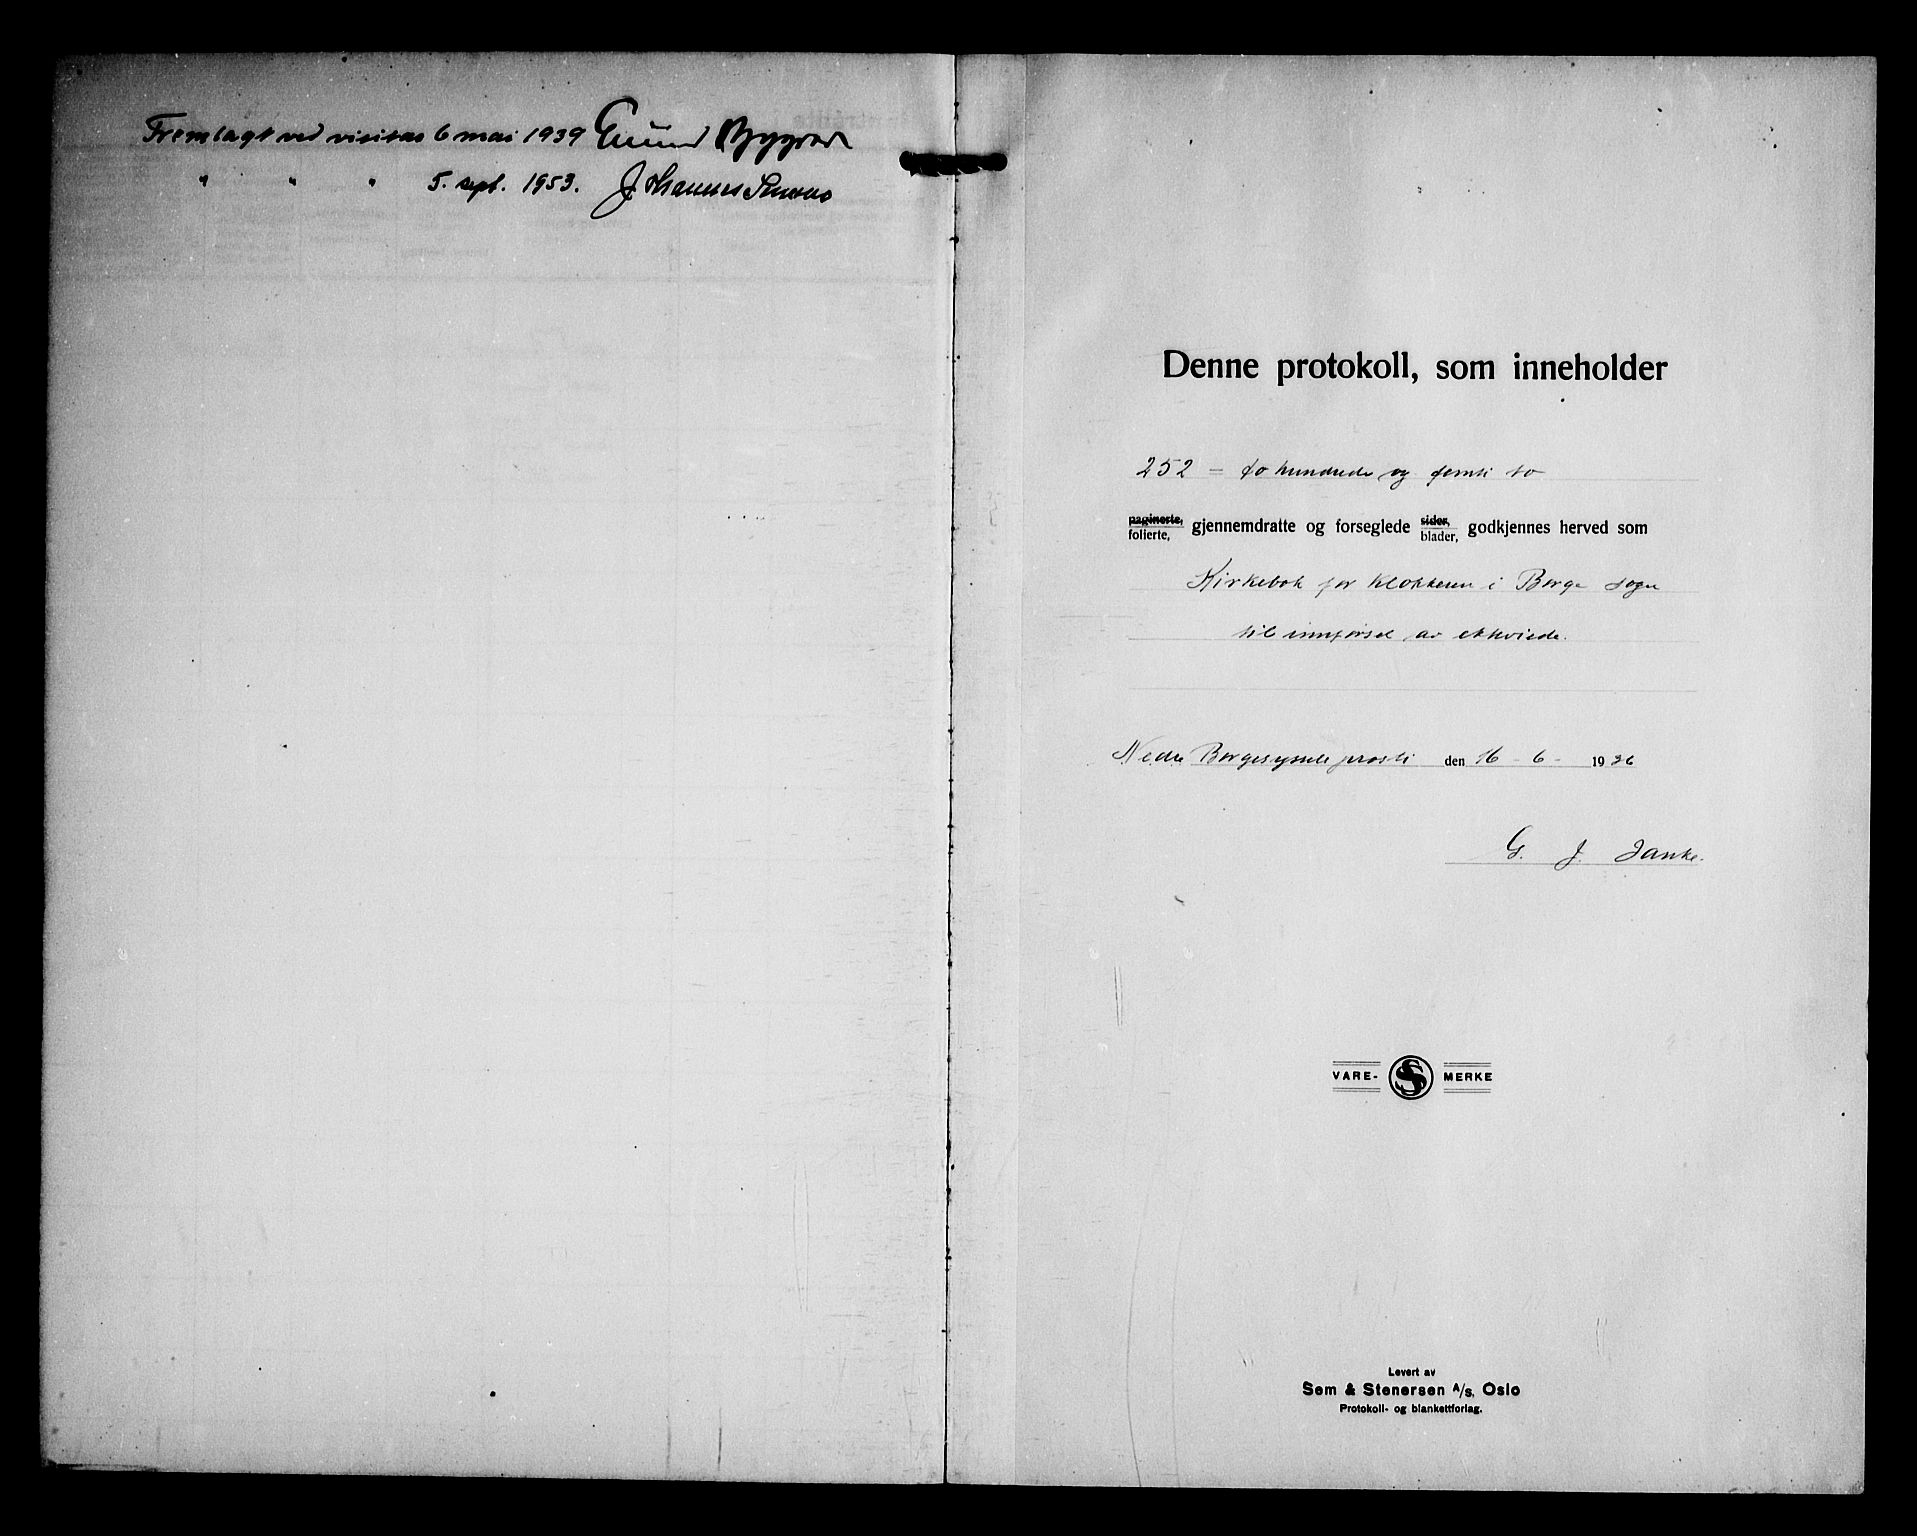 Fremlagt ved visitas 6 mai 1939
" " " 5. sept. 1953. Johannes Smemo
Denne protokoll, som inneholder
252 = to hundrede og femti to
paginerte,
folierte, gjennemdratte og forseglede sider, blader, godkjennes herved som
Kirkebok for klokkeren i Borge sogn
til innførsel av ektviede.
Nedre Borgesyssels prosti den 16 - 6 - 1936
G. J. Janke.
VARE- SS MERKE
Levert av
Sem & Stenersen A/s, Oslo
Protokoll- og blankettforlag.